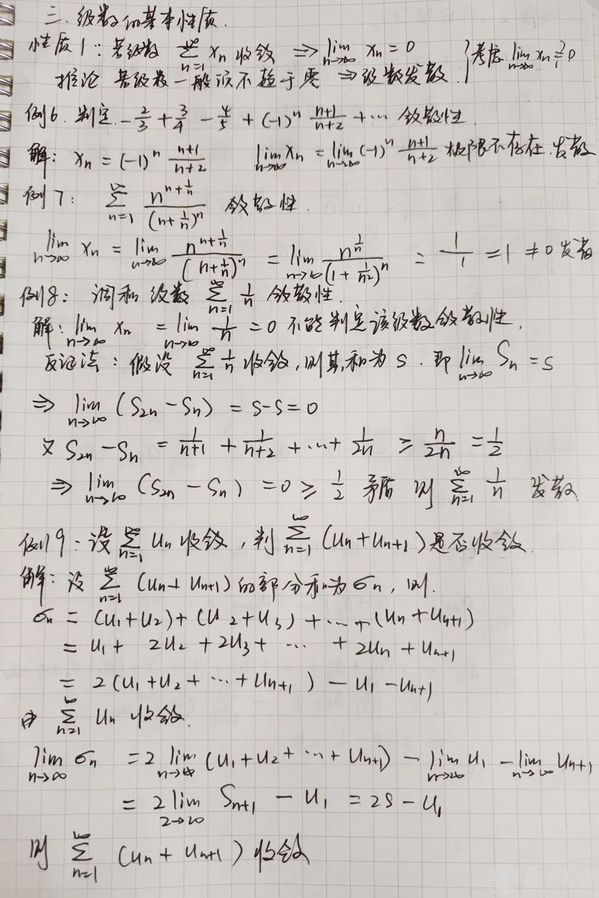 三、级数的基本性质.
性质1: 若级数 ∑_{n=1}^{∞} xₙ 收敛 ⇒ lim_{n→∞} xₙ = 0 } 考虑 lim_{n→∞} xₙ ≟ 0
推论 若级数一般项不趋于零 ⇒ 级数发散.
例6. 判定 -2/3 + 3/4 - 4/5 + (-1)ⁿ (n+1)/(n+2) + ⋯ 敛散性.
解: xₙ = (-1)ⁿ (n+1)/(n+2) lim_{n→∞} xₙ = lim_{n→∞} (-1)ⁿ (n+1)/(n+2) 极限不存在. 发散
例7: ∑_{n=1}^{∞} n^{n+1/n}/(n+1/n)ⁿ 敛散性.
lim_{n→∞} xₙ = lim_{n→∞} n^{n+1/n}/(n+1/n)ⁿ = lim_{n→∞} n^{1/n}/(1+1/n²)ⁿ = 1/1 = 1 ≠ 0 发散
例8: 调和级数 ∑_{n=1}^{∞} 1/n 敛散性.
解: lim_{n→∞} xₙ = lim_{n→∞} 1/n = 0 不能判定该级数敛散性.
反证法: 假设 ∑_{n=1}^{∞} 1/n 收敛, 则其和为 S. 即 lim_{n→∞} Sₙ = S
⇒ lim_{n→∞} (S₂ₙ - Sₙ) = S-S = 0
又 S₂ₙ - Sₙ = 1/(n+1) + 1/(n+2) + ⋯ + 1/2n ≥ n/2n = 1/2
⇒ lim_{n→∞} (S₂ₙ - Sₙ) = 0 ≥ 1/2 矛盾 则 ∑_{n=1}^{∞} 1/n 发散.
例9: 设 ∑_{n=1}^{∞} uₙ 收敛, 判 ∑_{n=1}^{∞} (uₙ + uₙ₊₁) 是否收敛.
解: 设 ∑_{n=1}^{∞} (uₙ + uₙ₊₁) 的部分和为 σₙ, 则.
σₙ = (u₁+u₂) + (u₂+u₃) + ⋯ + (uₙ + uₙ₊₁)
= u₁ + 2u₂ + 2u₃ + ⋯ + 2uₙ + uₙ₊₁
= 2(u₁+u₂+⋯+uₙ₊₁) - u₁ - uₙ₊₁
由 ∑_{n=1}^{∞} uₙ 收敛.
lim_{n→∞} σₙ = 2 lim_{n→∞} (u₁+u₂+⋯+uₙ₊₁) - lim_{n→∞} u₁ - lim_{n→∞} uₙ₊₁
= 2 lim_{2→∞} Sₙ₊₁ - u₁ = 2S - u₁
则 ∑_{n=1}^{∞} (uₙ + uₙ₊₁) 收敛